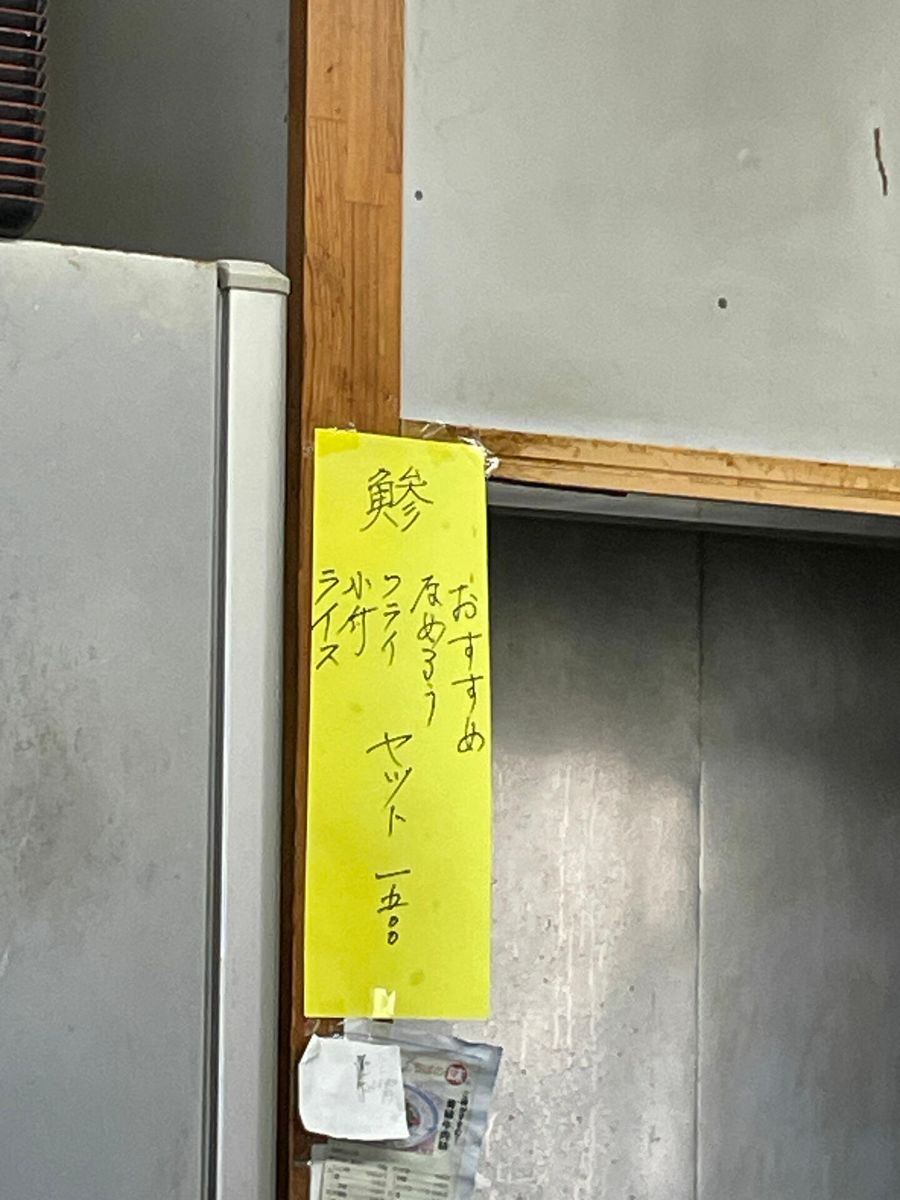 鯵
おすすめ
なめろう
フライ
小付
ライス
セット
一五〇〇